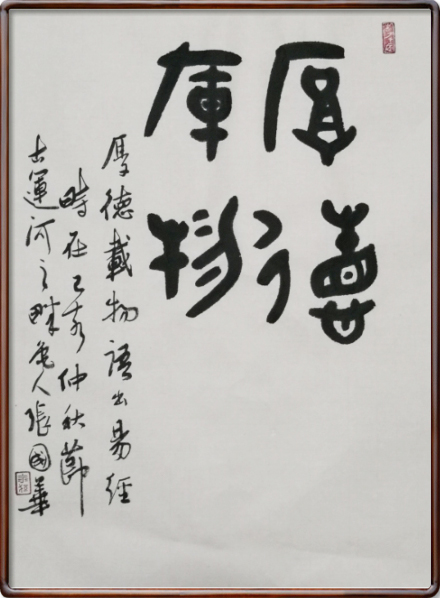 厚德
載物
厚德載物語出易經
時在己亥仲秋節
古運河之畔人張國華